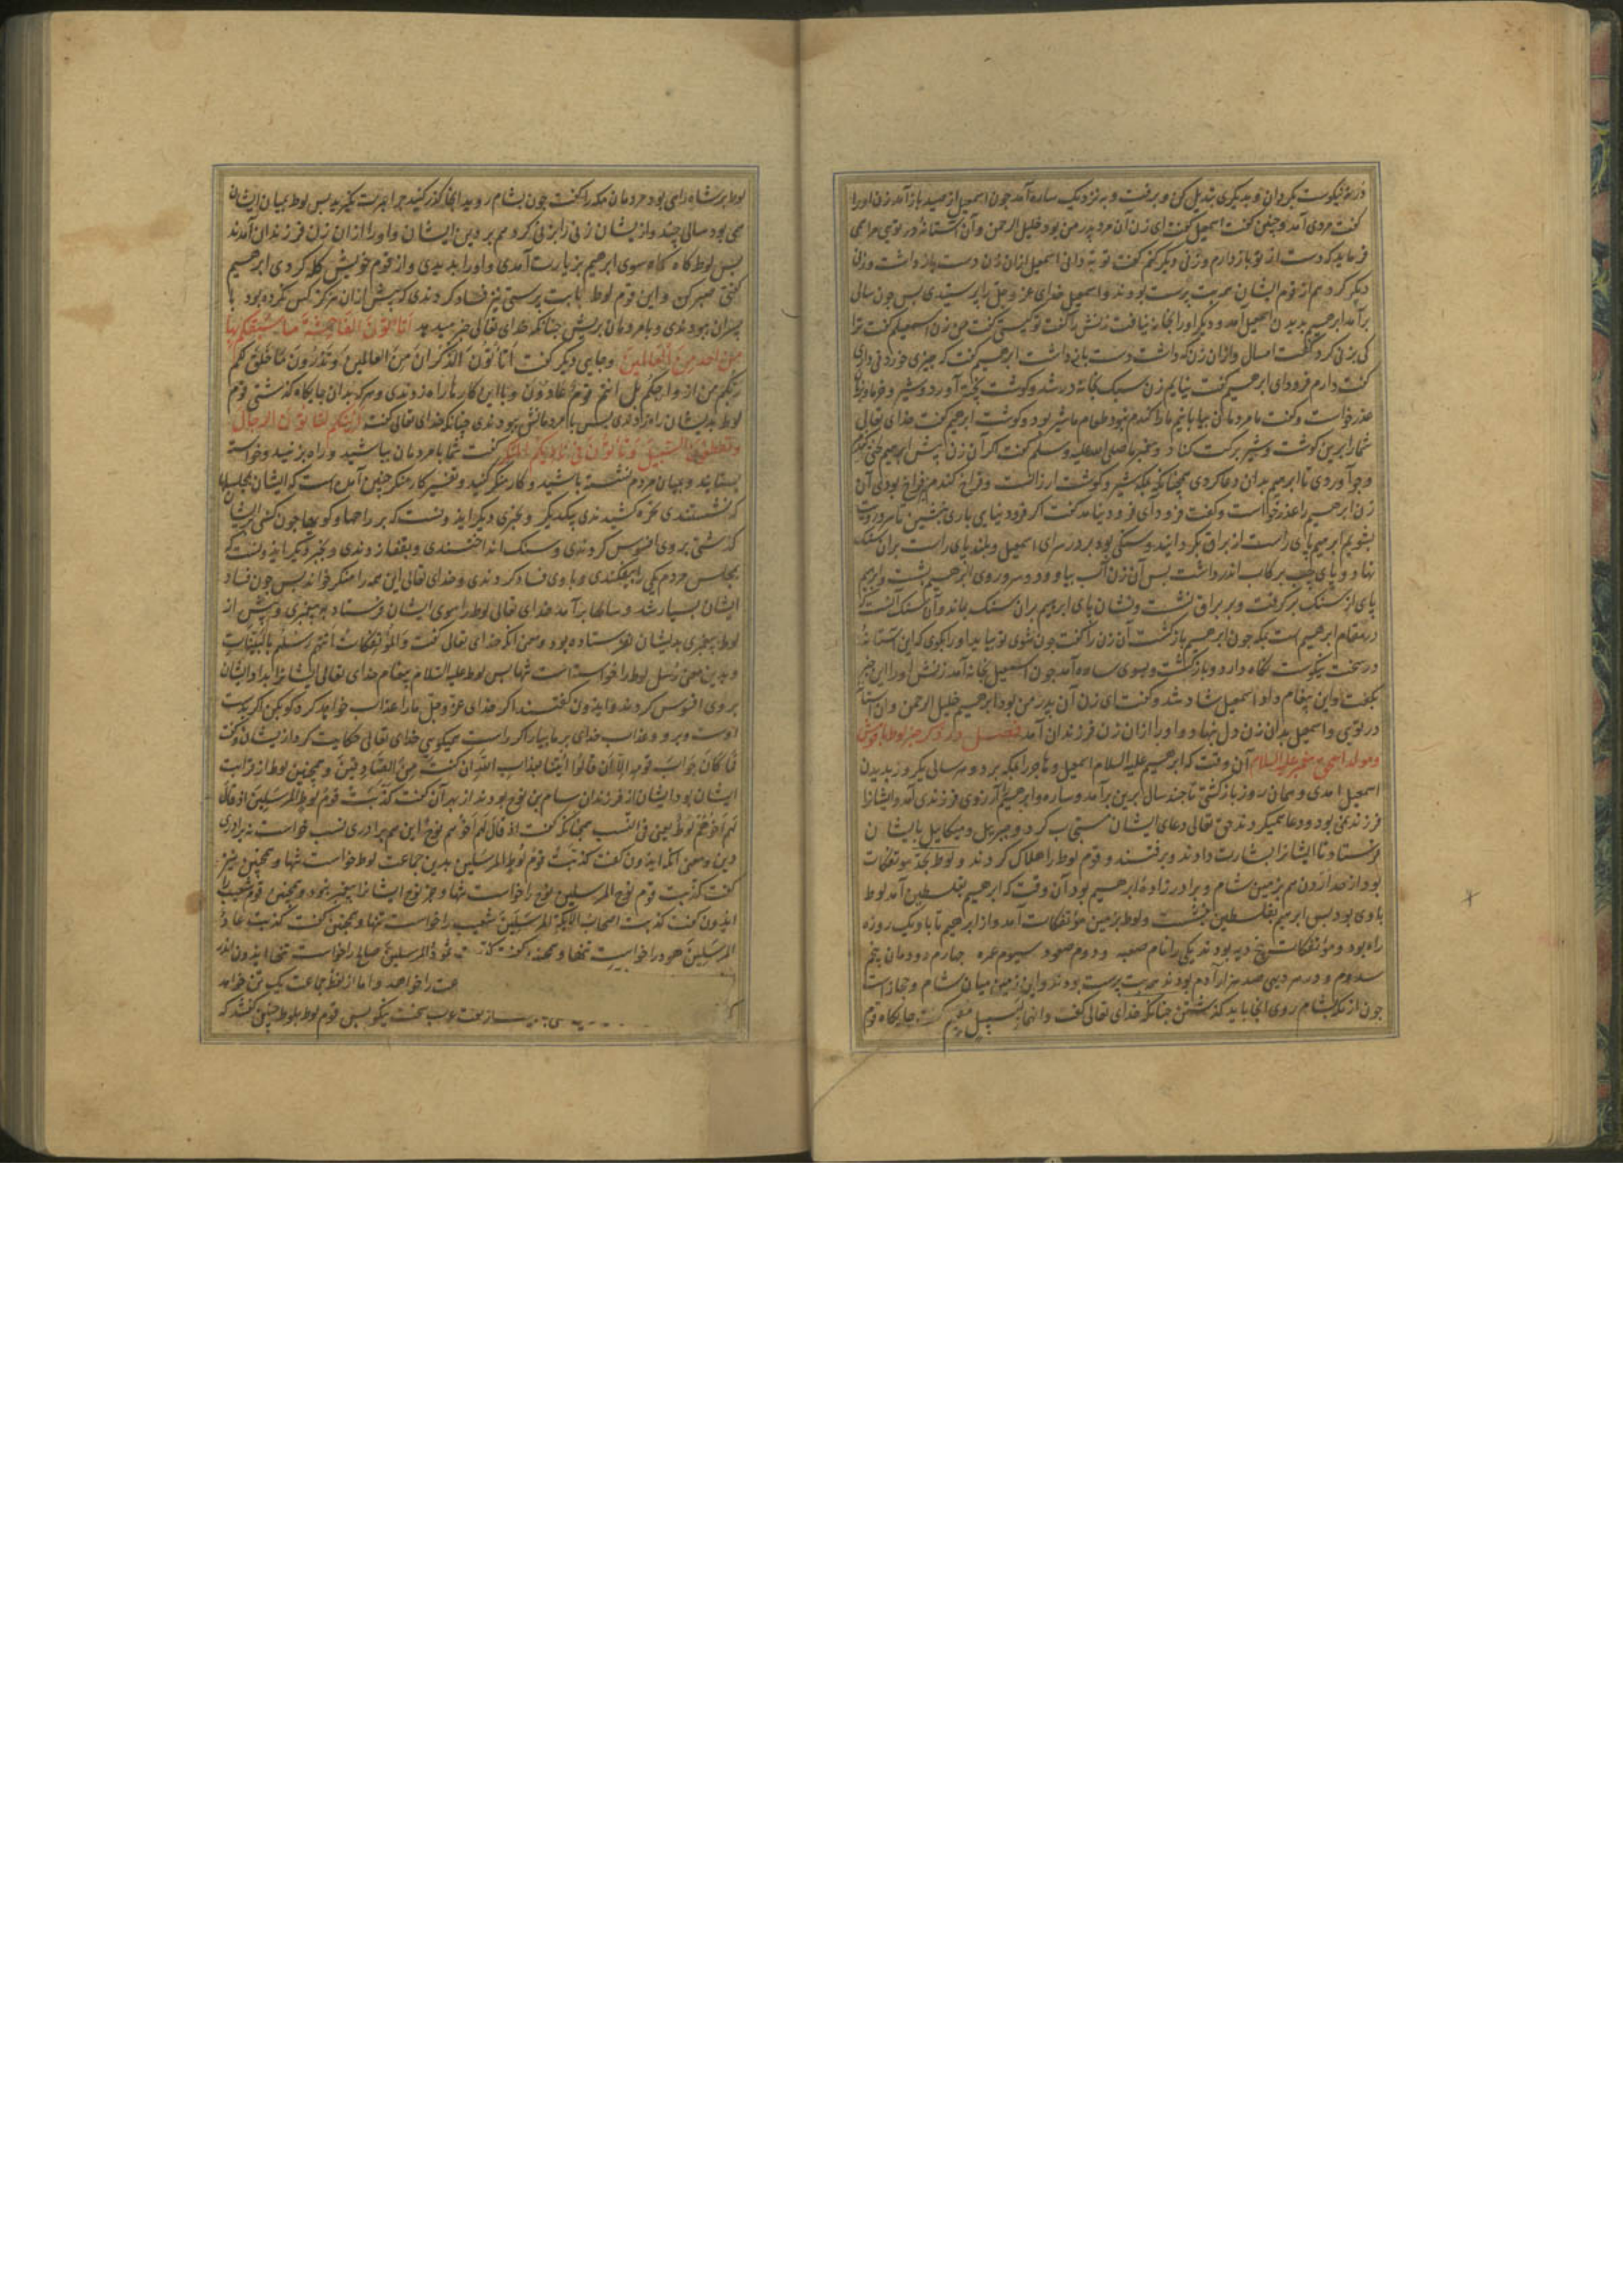 در تو نیکوست بگردان و بدیگری بتدیل کن و برفت و به نزدیک ساره آمد جون اسمعیل از صید باز آمد زن او را
کفت مردی آمد و چنین کفت اسمعیل کفت ای زن آن مرد پدر من بود خلیل الرحمن و آن استانهٔ در تویی مرا می
فرماید که دست از تو باز دارم و زنی دیکر کنم کفت تو به دانی اسمعیل ازان زن دست باز داشت و زنی
دیکر کرد هم از قوم ایشان همه بت پرست بودند و اسمعیل خدای عز و جل را پرستیدی بس جون سالی
برآمد ابرهیم بدیدن اسمعیل آمد و دیکر او را بخانه نیافت زنش را کفت تو کیستی کفت من زن اسمعیلم کفت ترا
کی بزنی کرد کفت امسال و ازان زن که داشت دست باز داشت ابرهیم کفت که چیزی خوردنی داری
کفت دارم فرود ای ابرهیم کفت نیایم زن سبک بخانه در شد و کوشت پخته آورد و شیر و خرما و زیت
عذر خواست و کفت ما مردمان بیابانیم ما را کندم نبود طعام ما شیر بود و کوشت ابرهیم کفت خدای تعالی
شما را برین کوشت و شیر برکت کناد و پیغمبر ما صلی الله علیه و سلم کفت اکر آن زن پیش ابرهیم
و جو آوردی تا ابرهیم بدان دعا کردی همچنانکه بمکه شیر و کوشت ارزانست و فراخ کندم هم فراخ بودی آن
زن ابرهیم را عذر خواست و کفت فرود ای فرود نیامد کفت اکر فرود نیایی باری بنشین تا سر و روت
بشویم ابرهیم پای راست از براق بکردانید و سنکی بود بر در سرای اسمعیل و بلند پای راست بران سنک
نهاد و پای چپ برکاب اندر داشت بس آن زن آب بیاورد و سر و روی ابرهیم بشست و ابرهیم
پای از سنک برکرفت و بر براق نشست و نشان پای ابرهیم بران سنک بماند و آن سنک آنست که
در مقام ابرهیم است بمکه جون ابرهیم باز کشت آن زن را کفت جون شوی تو بیاید او را بکوی که این آستانهٔ
در سخت نیکوست نکاه دار و باز کشت و بسوی ساره آمد جون اسمعیل بخانه آمد زنش او را این خبر
بکفت و این پیغام داد اسمعیل شاد شد و کفت ای زن آن پدر من بود ابرهیم خلیل الرحمن و آن استانهٔ
در تویی و اسمعیل بدان زن دل بنهاد و او را ازان زن فرزندان آمد فصل در ذکر خبر لوط با قومش
و مولد اسحق پیغمبر علیه السلام آن وقت که ابرهیم علیه السلام اسمعیل و هاجر را بمکه برد و هر سالی یکروز بدیدن
اسمعیل امدی و همان روز باز کشتی تا جند سال برین برآمد و ساره و ابرهیم را آرزوی فرزندی آمد و ایشانرا
فرزند نمی بود و دعا همیکردند حق تعالی دعای ایشان مستجاب کرد و جبریل و میکاییل بایشان
فرستاد تا ایشانرا بشارت دادند و برفتند و قوم لوط را هلاک کردند و لوط بحد موتفکات
بود از حد اردن هم بزمین شام و برادر زادهٔ ابرهیم بود آن وقت که ابرهیم بفلسطین آمد لوط
با وی بود بس ابرهیم بفلسطین بنشست و لوط بزمین موتفکات آمد و از ابرهیم تا باو یک روزه
راه بود و موتفکات پنج دیه بودند یکی را نام صعبه و دوم صعود سیوم عمره جهارم دودمان پنجم
سدوم و در هر دیهی صد هزار آدم بودند همه بت پرست بودند و این زمین میان شام و حجاز است
جون از مکه بشام روی انجا باید کذشتن جنانکه خدای تعالی کفت و انها لبسبیل مقیم کرت جایکاه قوم
لوط بر شاه راهی بود مردمان مکه را کفت جون بشام روید انجا کذر کنید جرا عبرت نکیرید بس لوط بمیان ایشان
می بود سالی جند و از یشان زنی را بزنی کرد هم بر دین ایشان و او را ازان زن فرزندان آمدند
بس لوط کاه کاه سوی ابرهیم بزیارت آمدی و او را بدیدی و از قوم خویش کله کردی ابرهیم
کفتی صبر کن و این قوم لوط با بت پرستی نیز فساد کردندی که پیش ازان هرکز کس نکرده بود با
پسران ببودندی و با مردمان بریش جنانکه خدای تعالی خبر میدهد اتاتون الفاحشة ما سبقکم بها
من احد من العالمین و جایی دیکر کفت اتاتون الذکران من العالمین و تذرون ما خلق لکم
ربکم من ازواجکم بل انتم قوم عادون و با این کار ها راه زدندی و هر که بدان جایکاه کذشتی قوم
لوط بدیشان راه زدندی بس با مردمانش ببودندی جنانکه خدای تعالی کفت ائنکم لتاتون الرجال
و تقطعون السبیل و تاتون فی نادیکم المنکر کفت شما با مردمان بباشید و راه بزنید و خواسته
بستانید و بمیان مردم نشسته باشید و کار منکر کنید و تفسیر کار منکر چنین آمده است که ایشان بمجلسها
که نشستندی غمزه کشیدندی بیکدیکر و خبری دیکر ایذونست که بر راهها و کویها جون کسی بر ایشان
کذشتی بر وی افسوس کردندی و سنک انداختندی و بقفا زدندی و بخبر دیکر ایذونست که
بمجلس مردم یکی را بیفکندی و با وی فساد کردندی و خدای تعالی این همه را منکر خواند بس جون فساد
ایشان بسیار شد و سالها برآمد خدای تعالی لوط را سوی ایشان فرستاد به پیغمبری و پیش از
لوط پیغمبری بدیشان نفرستاده بود و معنی انکه خدای تعالی کفت و المؤتفکات اتتهم رسلهم بالبینات
و بدین معنی رسل لوط را خواسته است تنها بس لوط علیه السلام پیغام خدای تعالی ایشانرا بداد ایشان
بر وی افسوس کردند و ایذون کفتند اکر خدای عز و جل ما را عذاب خواهد کرد کو بکن اکر بدست
اوست و برو و عذاب خدای بر ما بیار اکر راست میکویی خدای تعالی حکایت کرد از یشان و کفت
فما کان جواب قومه الا ان قالوا ائتنا بعذاب الله ان کنت من الصادقین و همچنین لوط از قرابت
ایشان بود ایشان از فرزندان سام بن نوح بودند از بهر آن کفت کذبت قوم لوط المرسلین اذ قال
لهم اخوهم لوط یعنی فی النسب همچنانکه کفت اذ قال لهم اخوهم نوح این هم برادری نسب خواست نه برادری
دین و معنی انکه ایذون کفت کذبت قوم لوط المرسلین بدین جماعت لوط خواست تنها و همچنین نیز
کفت کذبت قوم نوح المرسلین نوح را خواست تنها و جز نوح ایشانرا پیغمبر نبود و همچنین قوم شعیب را
ایذون کفت کذب اصحاب الایکة المرسلین شعیب را خواست تنها و همچنین کفت کذبت عاد
المرسلین هود را خواست تنها و همچنین کفت کذبت ثمود المرسلین صالح را خواست تنها ایذون اندر
عت را خواهد و اما از لفظ جماعت یک تن خواهد
از لغت عرب سخت نیکو بس قوم لوط بلوط چنین کفتند که